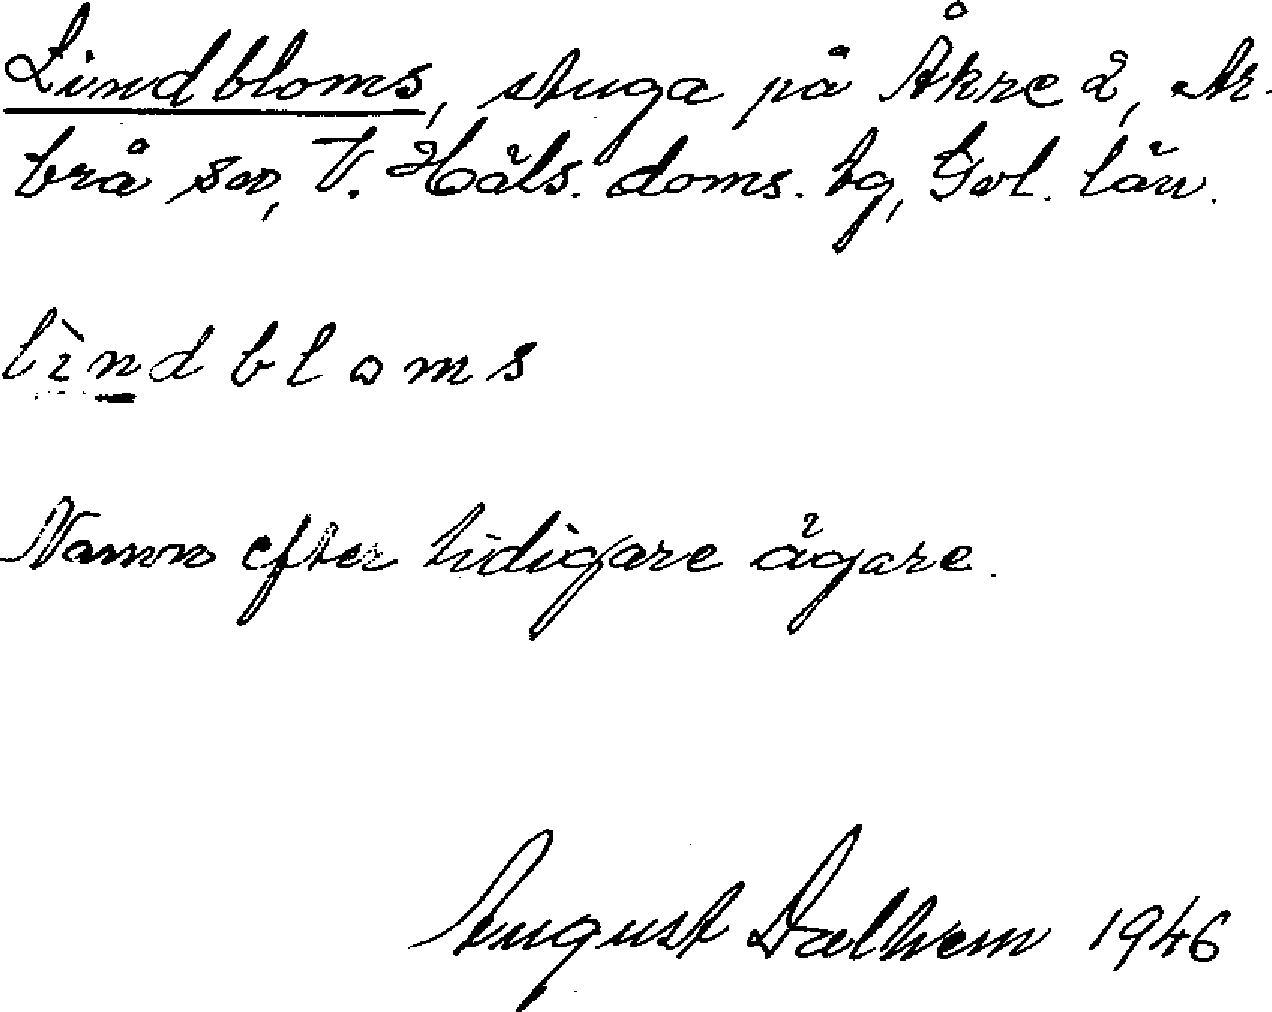 Lindbloms, stuga på Åkre 2, Ar-
brå sn, V. Häls. doms. tg, Gvl. län.
lìndbloms
Namn efter tidigare ägare.
August Dalhem 1946